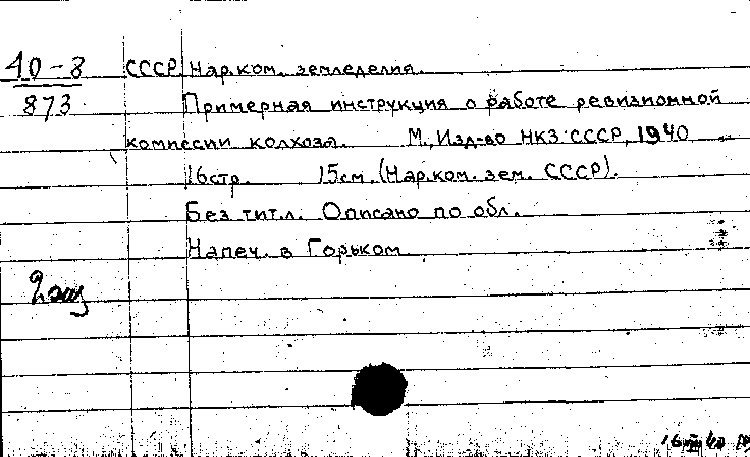 40-8 СССР Нар.ком. земледелия.
873 Примерная инструкция о работе ревизионной
комиссии колхоза. М., Изд-во НКЗ СССР, 1940
16стр. 15см. (Нар.ком. зем. СССР).
Без тит.л. Описано по обл.
Напеч. в Горьком